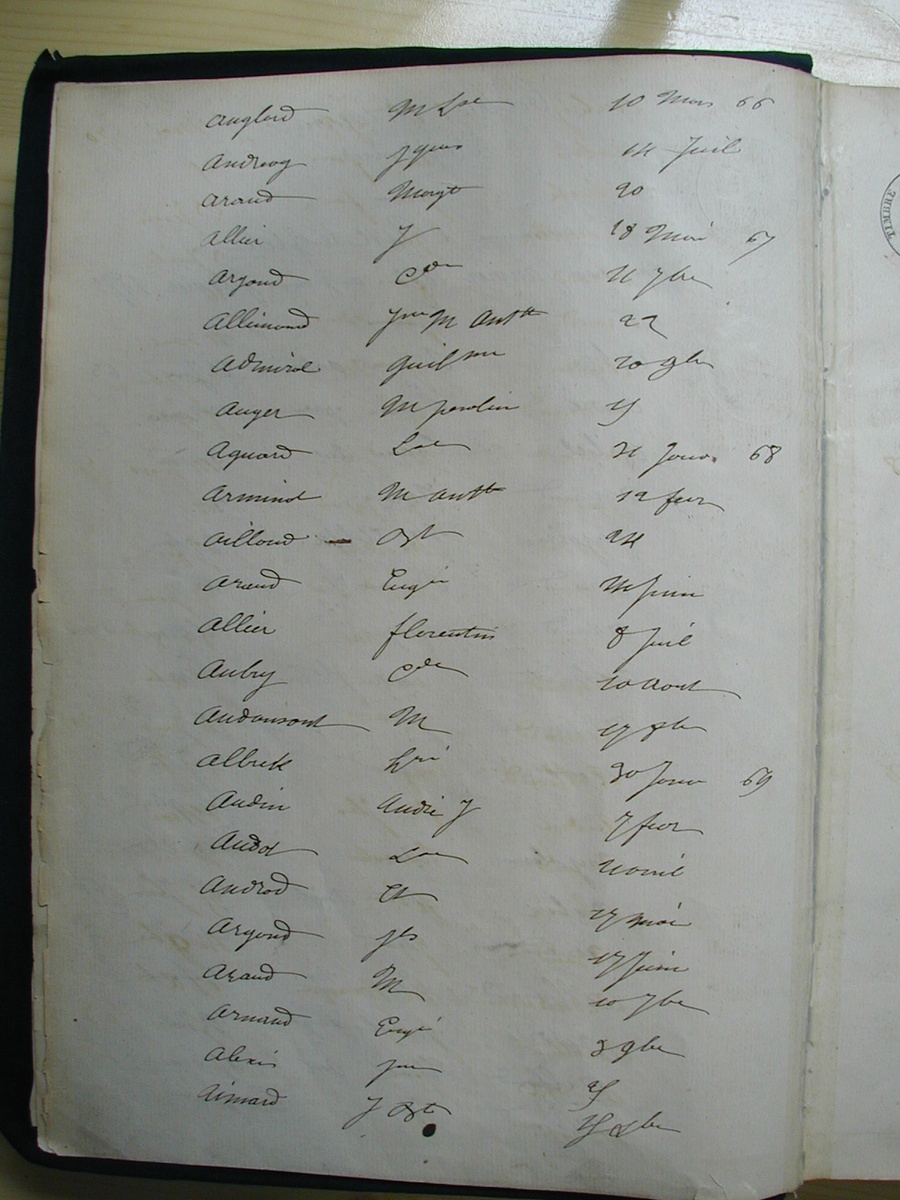 anglerd M Lse 10 Mars 66
Andrevy jques 14 Juil
araud Margt 20
allier J 18 Mai 67
argoud Cde 11 7bre
allimand Jne M Antte 22
admirol guilme 20 9bre
auger M paulin
aguard Lse 21 Janv. 68
armind M antte 12 fevr
ailloud Ogt 24
araud Eugie juin
allier florentin 8 Juil
Aubry Cde 10 Aout
AudouSont M 17 8bre
albrek hri 30 Janv 69
Audin André J 7 fevr
Audol Lse avril
Androd Et 17 mai
argoud jls 17 Juin
araud M 10 7bre
arnaud Eugé 3 9bre
alexis jne
aimard J Ogte
TIMBRE